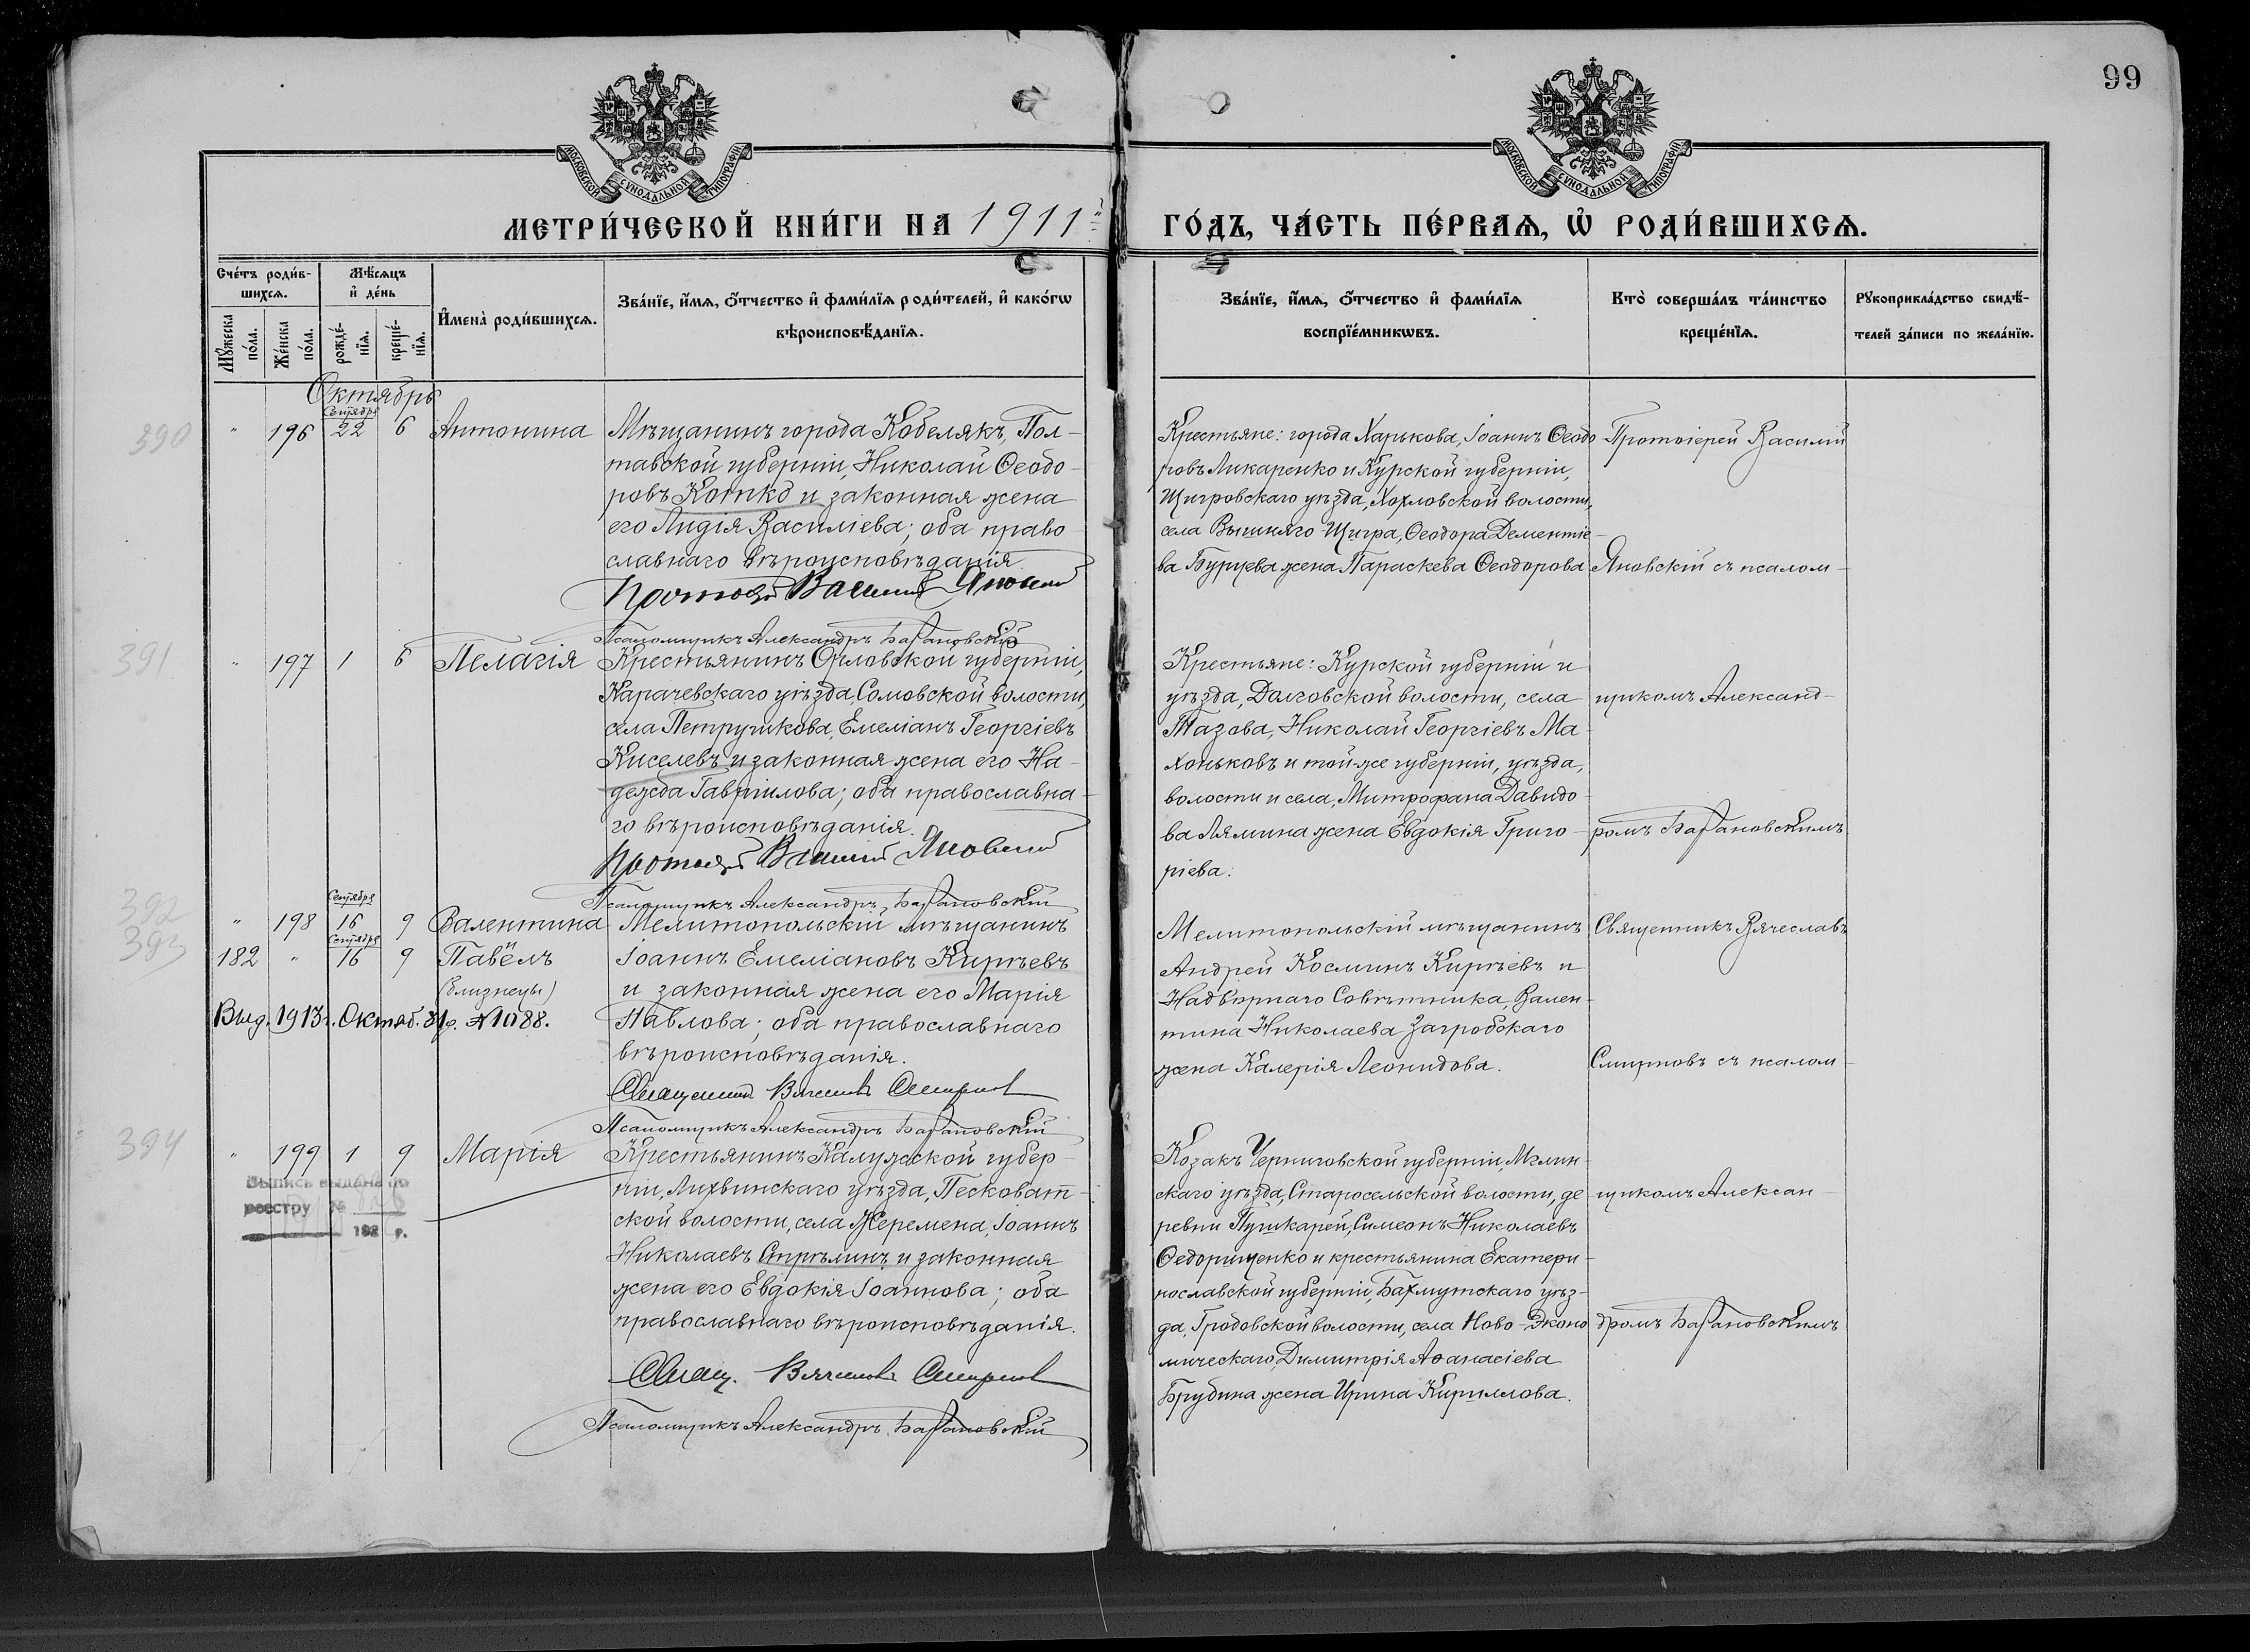 99
МОСКОВСКОЙ СѴНОДАЛЬНОЙ ТИПОГРАФІИ
МОСКОВСКОЙ СѴНОДАЛЬНОЙ ТИПОГРАФІИ
МЕТРИ́ЧЕСКОЙ КНИ́ГИ НА 1911й
ГО́ДЪ, ЧА́СТЬ ПЕ́РВАѦ, Ѡ҆ РОДИ́ВШИХСѦ.
Сче́тъ роди́в-
шихсѧ.
Мꙋ́жеска
по́ла.
Же́нска
по́ла.
Мѣ́сѧцъ
и҆ де́нь
рожде́-
нїѧ.
креще́-
нїѧ.
И҆мена̀ роди́вшихсѧ.
Зва́нїе, и҆́мѧ, ѻ҆́тчество и҆ фами́лїѧ роди́телей, и҆ како́гѡ
вѣроисповѣ́данїѧ.
Зва́нїе, и҆́мѧ, ѻ҆́тчество и҆ фами́лїѧ
воспрїе́мникѡвъ.
Кто̀ соверша́лъ та́инство
креще́нїѧ.
Рꙋкоприкла́дство свидѣ́-
телей за́писи по жела́нїю.
Октябрь
390
"
196
Сентября
22
6
Антонина
Мѣщанинъ города Кобелякъ, Пол-
тавской губерніи, Николай Ѳеодо-
ровъ Котко и законная жена
его Лидія Василіева; оба право-
славнаго вѣроисповѣданія
Протоіерей Василій Яновскій
Псаломщикъ Александръ Барановскій
Крестьяне: города Харькова, Іоаннъ Ѳеодо-
ровъ Ликаренко и Курской губерніи,
Щигровскаго уѣзда, Хохловской волости,
села Вышняго-Щигра, Ѳеодора Дементіе-
ва Бурцева жена Параскева Ѳеодорова
Протоіерей Василій
Яновскій съ псалом-
391
"
197
1
6
Пелагія
Крестьянинъ Орловской губерніи,
Карачевскаго уѣзда, Сомовской волости,
села Петрушкова, Емеліанъ Георгіевъ
Киселевъ и законная жена его На-
дежда Гавріилова; оба православна-
го вѣроисповѣданія.
Протоіерей Василій Яновскій
Псаломщикъ Александръ Барановскій
Крестьяне: Курской губерніи и
уѣзда, Долговской волости, села
Тазова, Николай Георгіевъ Ма-
хоньковъ и той-же губерніи, уѣзда,
волости и села, Митрофана Давидо-
ва Лямина жена Евдокія Григо-
ріева.
щикомъ Александ-
ромъ Барановскимъ
392
"
198
Сентября
16
9
Валентина
393
182
"
Сентября
16
9
Павелъ
(близнецы)
Выд. 1913 г. Октяб. 31 д. № 1088.
Мелитопольскій мѣщанинъ
Іоаннъ Емеліановъ Киріевъ
и законная жена его Марія
Павлова; оба православнаго
вѣроисповѣданія.
Священникъ Вячеславъ Смирновъ
Псаломщикъ Александръ Барановскій
Мелитопольскій мѣщанинъ
Андрей Косминъ Киріевъ и
Надворнаго Совѣтника, Вален-
тина Николаева Загробскаго
жена Калерія Леонидова.
Священникъ Вячеславъ
Смирновъ съ псалом-
394
"
199
1
9
Марія
Выпись выдана по
реестру №
192 г.
Крестьянинъ Калужской губер-
ніи, Лихвинскаго уѣзда, Песковат-
ской волости, села Жеремена, Іоаннъ
Николаевъ Стрѣлинъ и законная
жена его Евдокія Іоаннова; оба
православнаго вѣроисповѣданія.
Свящ. Вячеславъ Смирновъ
Псаломщикъ Александръ Барановскій
Козакъ Черниговской губерніи, Мглин-
скаго уѣзда, Старосельской волости, де-
ревни Пушкарей, Симеонъ Николаевъ
Ѳедорищенко и крестьянина Екатери-
нославской губерніи, Бахмутскаго уѣз-
да, Гродовской волости, села Ново-Эконо-
мическаго, Димитрія Аѳанасіева
Брудина жена Ирина Кириллова.
щикомъ Алексан-
дромъ Барановскимъ